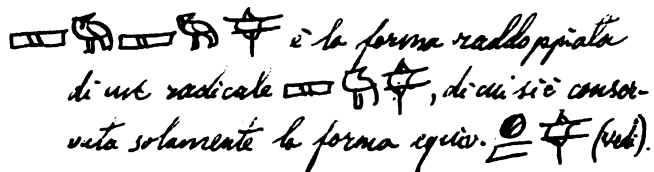 è la forma raddoppiata
di una radicale , di cui si è conser-
vata solamente la forma equiv. (vedi).